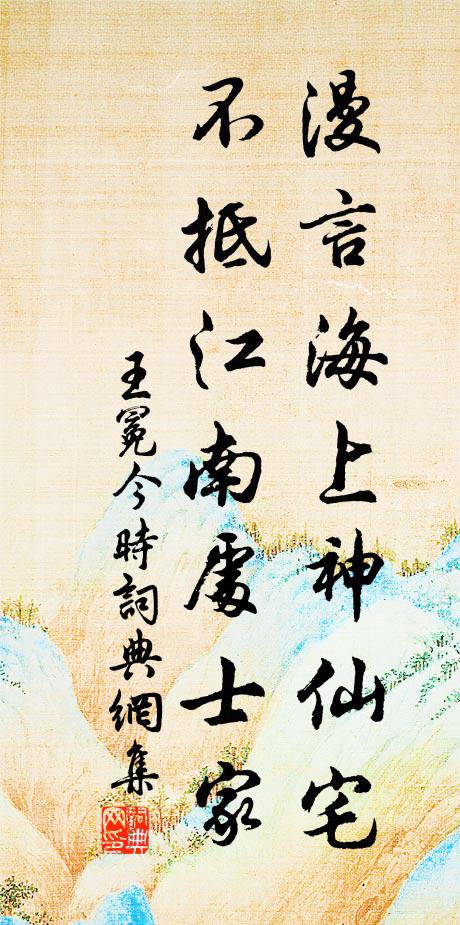 漫言海上神仙宅
不抵江南處士家
王冕今時詞典網集
詞典網印